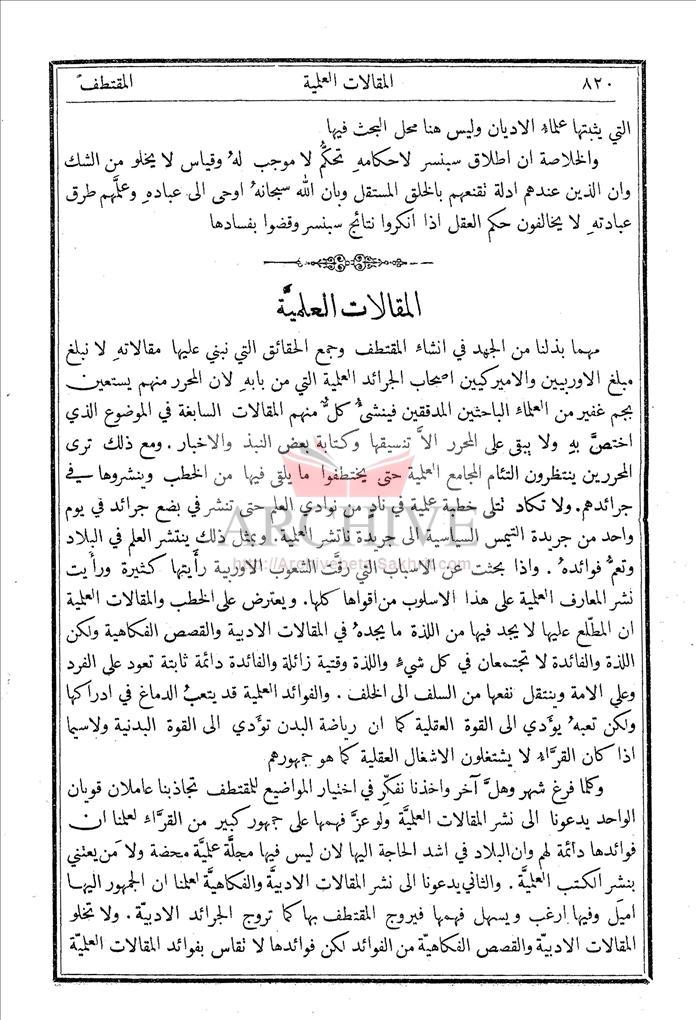 ٨٢٠ المقالات العلمية المقتطف
التي يثبتها علماء الاديان وليس هنا محل البحث فيها
والخلاصة ان اطلاق سبنسر لاحكامهِ تحكُّم لا موجب لهُ وقياس لا يخلو من الشك
وان الذين عندهم ادلة نقنعهم بالخلق المستقل وبان الله سبحانهُ اوحى الى عبادهِ وعلَّمهم طرق
عبادتهِ لا يخالفون حكم العقل اذا انكروا نتائج سبنسر وقضوا بفسادها
المقالات العلميَّة
مهما بذلنا من الجهد في انشاء المقتطف وجمع الحقائق التي نبني عليها مقالاتهِ لا نبلغ
مبلغ الاوربيين والاميركيين اصحاب الجرائد العلمية التي من بابهِ لان المحرر منهم يستعين
بجم غفير من العلماء الباحثين المدققين فينشئُ كلٌّ منهم المقالات السابغة في الموضوع الذي
اختصَّ بهِ ولا يبقى على المحرر الاَّ تنسيقها وكتابة بعض النبذ والاخبار . ومع ذلك ترى
المحررين ينتظرون التئام المجامع العلمية حتى يختطفوا ما يلقى فيها من الخطب وينشروها في
جرائدهم . ولا تكاد تتلى خطبة علمية في نادٍ من نوادي العلم حتى تنشر في بضع جرائد في يوم
واحد من جريدة التيمس السياسية الى جريدة ناتشر العلمية . وبمثل ذلك ينتشر العلم في البلاد
وتعمُّ فوائدهُ . واذا بحثت عن الاسباب التي رقَّت الشعوب الاوربية رأيتها كثيرة ورأيت
ARCHIVE
http://Archivebeta.Sakhrit.com
نشر المعارف العلمية على هذا الاسلوب من اقواها كلها . ويعترض على الخطب والمقالات العلمية
ان المطّلع عليها لا يجد فيها من اللذة ما يجدهُ في المقالات الادبية والقصص الفكاهية ولكن
اللذة والفائدة لا تجتمعان في كل شيءٍ واللذة وقتية زائلة والفائدة دائمة ثابتة تعود على الفرد
وعلى الامة وينتقل نفعها من السلف الى الخلف . والفوائد العلمية قد يتعب الدماغ في ادراكها
ولكن تعبهُ يؤدي الى القوة العقلية كما ان رياضة البدن تؤدي الى القوة البدنية ولاسيما
اذا كان القرَّاء لا يشتغلون الاشغال العقلية كما هو جمهورهم
وكلما فرغ شهر وهلَّ آخر واخذنا نفكّر في اختيار المواضيع للمقتطف تجاذبنا عاملان قويان
الواحد يدعونا الى نشر المقالات العلميَّة ولو عزَّ فهمها على جمهور كبير من القراء لعلمنا ان
فوائدها دائمة لهم وان البلاد في اشد الحاجة اليها لان ليس فيها مجلَّة علميَّة محضة ولا مَن يعتني
بنشر الكتب العلميَّة . والثاني يدعونا الى نشر المقالات الادبيَّة والفكاهيَّة لعلمنا ان الجمهور اليها
اميَل وفيها ارغب ويسهل فهمها فيروج المقتطف بها كما تروج الجرائد الادبيّة . ولا تخلو
المقالات الادبيّة والقصص الفكاهيّة من الفوائد لكن فوائدها لا تقاس بفوائد المقالات العلميّة